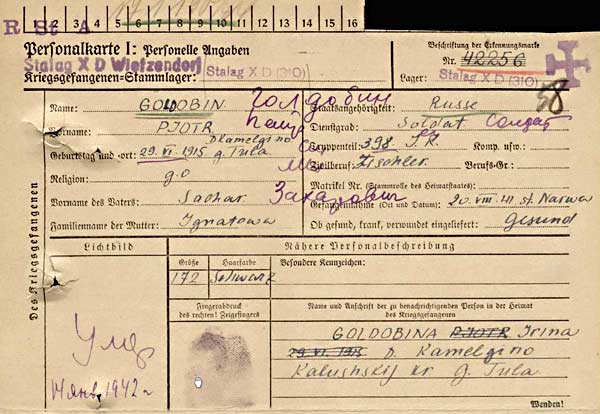 1 2 3 4 5 6 7 8 9 10 11 12 13 14 15 16
R St A
Personalkarte I: Personelle Angaben
Stalag X D Wietzendorf
Kriegsgefangenen-Stammlager: Stalag X D (310)
Beschriftung der Erkennungsmarke
Nr. 42256
Lager: Stalag X D (310)
58
Name: GOLDOBIN Голдобин
Vorname: PJOTR Петр
Geburtstag und -ort: 29. VI. 1915 D Kamelgino g. Tula
Religion: g.o
Vorname des Vaters: Sachar Захарович
Familienname der Mutter: Ignatowa
Staatsangehörigkeit: Russe
Dienstgrad: Soldat Солдат
Truppenteil: 398 I.R. Komp. usw.:
Zivilberuf: Tischler Berufs-Gr.:
Matrikel Nr. (Stammrolle des Heimatstaates):
Gefangennahme (Ort und Datum): 20. VIII. 41 st. Narwa
Ob gesund, krank, verwundet eingeliefert: Gesund
Des Kriegsgefangenen
Lichtbild
Nähere Personalbeschreibung
Größe Haarfarbe
172 Schwarz
Besondere Kennzeichen:
Fingerabdruck
des rechten! Zeigefingers
Name und Anschrift der zu benachrichtigenden Person in der Heimat
des Kriegsgefangenen
GOLDOBINA PJOTR Irina
29. VI. 1915 D. Kamelgino
Kalushskij kr g. Tula
Умер
14 янв 1942 г
Wenden!